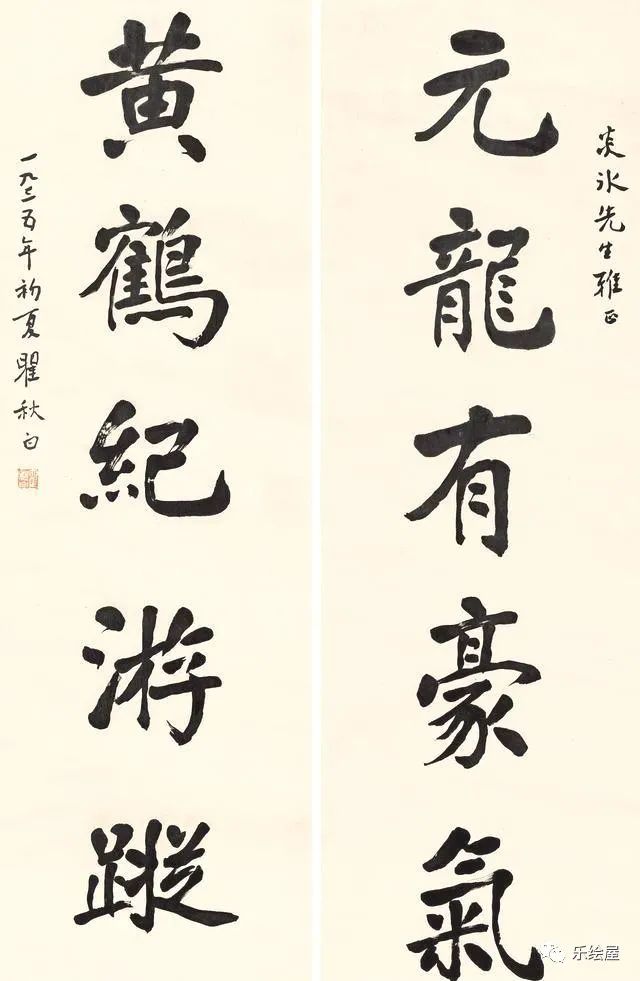 炎冰先生雅正
元龍有豪氣
黄鶴紀游蹤
一九三五年初夏瞿秋白
乐绘屋